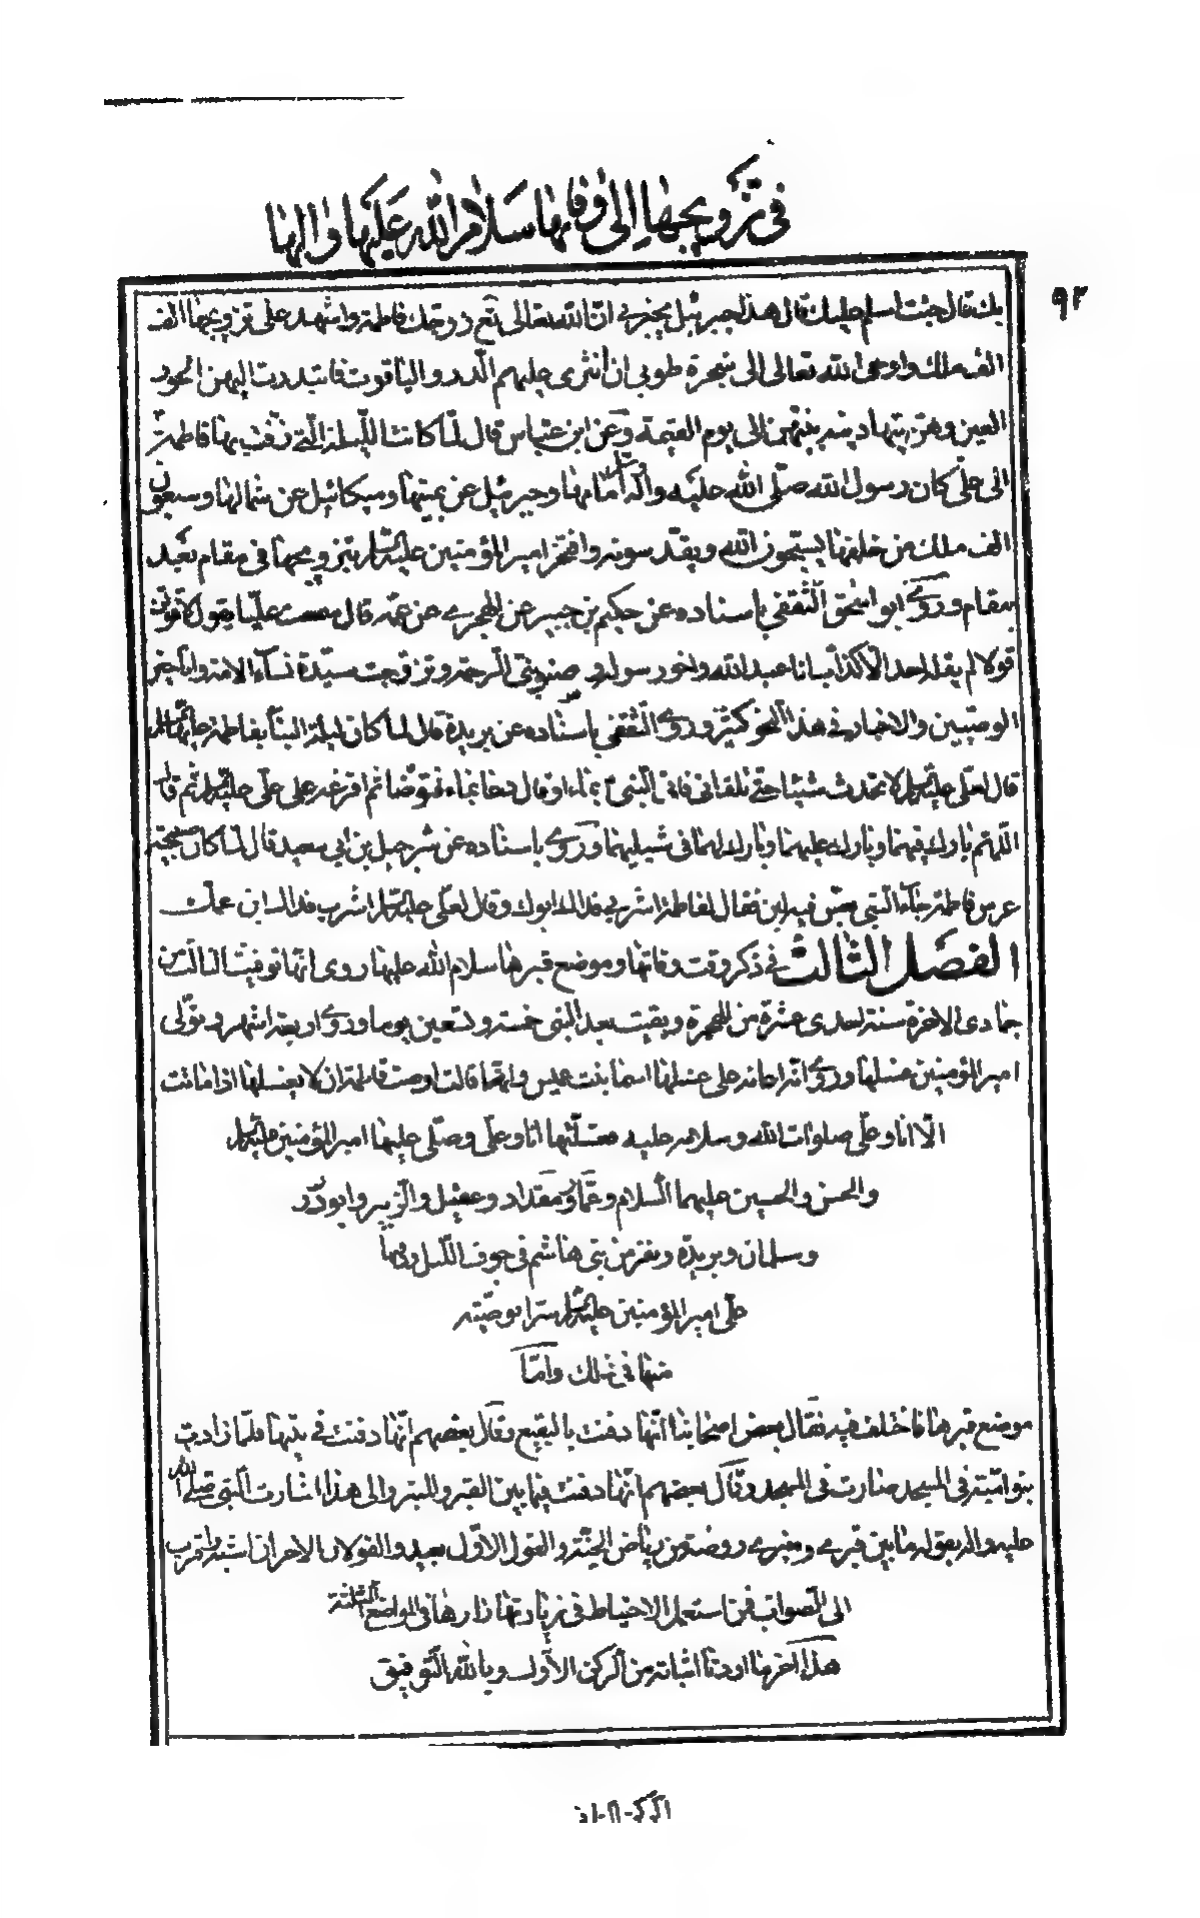 في تزويجها إلى وفاتها سلام الله عليها وابيها
٩٣
بك قال جئت اسلم عليك قال هذا جبرئيل يخبرني ان الله تعالى زوجك فاطمة واشهد على تزويجها الف
الف ملك واوحى الله تعالى الى شجرة طوبى ان انثري عليهم الدر والياقوت فابتدرت اليهن الحور
العين وهن يتهادينه بينهن الى يوم القيمة وعن ابن عباس قال لما كانت الليلة التي زفت بها فاطمة
الى علي كان رسول الله صلى الله عليه واله وسلم امامها وجبرئيل عن يمينها وميكائيل عن شمالها وسبعون
الف ملك من خلفها يسبحون الله ويقدسونه وافتخر امير المؤمنين عليه السلم بتزويجها في مقام بعد
مقام وروى ابو اسحق الثقفي باسناده عن حكيم بن جبير عن الهجري عن عمه قال سمعت عليا يقول لاقولن
قولا لم يقله احد الا كذاب انا عبد الله واخو رسوله وصنو نبي الرحمة وتزوجت سيدة نساء الامة وانا خير
الوصيين والاخبار في هذا النحو كثيرة وروى الثقفي باسناده عن بريدة قال لما كان ليلة البناء بفاطمة عليها السلم
قال لعلي عليه السلم لا تحدث شيئا حتى تلقاني فاتى النبي بماء او قال دعا بماء فتوضا ثم افرغه على علي عليه السلم ثم قال
اللهم بارك فيهما وبارك عليهما وبارك لهما في شبليهما وروى باسناده عن شرحبيل بن ابي سعيد قال لما كان صبيحة
عرس فاطمة جاء النبي بعس فيه لبن فقال لفاطمة اشربي فداك ابوك وقال لعلي عليه السلم اشرب فداك ابن عمك
الفصل الثالث في ذكر وقت وفاتها وموضع قبرها سلام الله عليها روى انها توفيت الثالث من
جمادى الاخرة سنة احدى عشرة من الهجرة وبقيت بعد النبي خمسة وتسعين يوما وروى اربعة اشهر وتولى
امير المؤمنين غسلها وروى انه اعانه على غسلها اسما بنت عميس وانها قالت اوصت فاطمة ان لا يغسلها اذا ماتت
الا انا وعلي صلوات الله وسلامه عليه فغسلتها انا وعلي وصلى عليها امير المؤمنين عليه السلم
والحسن والحسين عليهما السلام وعمار ومقداد وعقيل والزبير وابو ذر
وسلمان وبريدة ونفر من بني هاشم في جوف الليل ودفنها
علي امير المؤمنين عليه السلم سرا بوصية
منها في ذلك واما
موضع قبرها فاختلف فيه فقال بعض اصحابنا انها دفنت بالبقيع وقال بعضهم انها دفنت في بيتها فلما زادت
بنو امية في المسجد صارت في المسجد وقال بعضهم انها دفنت فيما بين القبر والمنبر والى هذا اشارت النبي صلى الله
عليه واله بقوله ما بين قبري ومنبري روضة من رياض الجنة والقول الاول بعيد والقولان الاخران اشبه واقرب
الى الصواب فمن استعمل الاحتياط في زيارتها زارها في المواضع الثلثة
هذا اخر ما اردنا اثباته من الركن الاول وبالله التوفيق